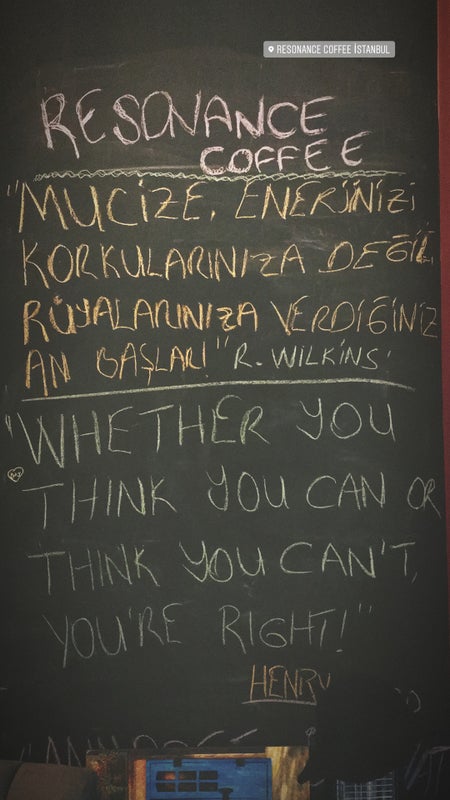 RESONANCE COFFEE İSTANBUL
RESONANCE
COFFEE
"MUCİZE, ENERJİNİZİ
KORKULARINIZA DEĞİL
RÜYALARINIZA VERDİĞİNİZ
AN BAŞLAR!" R. WILKINS
"WHETHER YOU
THINK YOU CAN OR
THINK YOU CAN'T,
YOU'RE RIGHT!"
HENRY